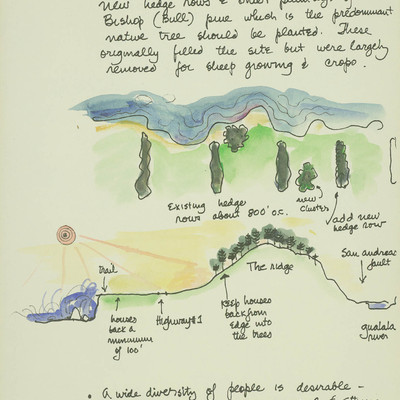 new hedge rows & other plantings of
Bishop (Bull) pine which is the predominant
native tree should be planted. These
originally filled the site but were largely
removed for sheep growing & crops.
Existing hedge
rows about 800' o.c.
new
cluster
add new
hedge row
trail
The ridge
San andreas
fault
houses
back a
minimum
of 100'
Highway #1
Keep houses
back from
edge into
the trees
gualala
river
• A wide diversity of people is desirable -